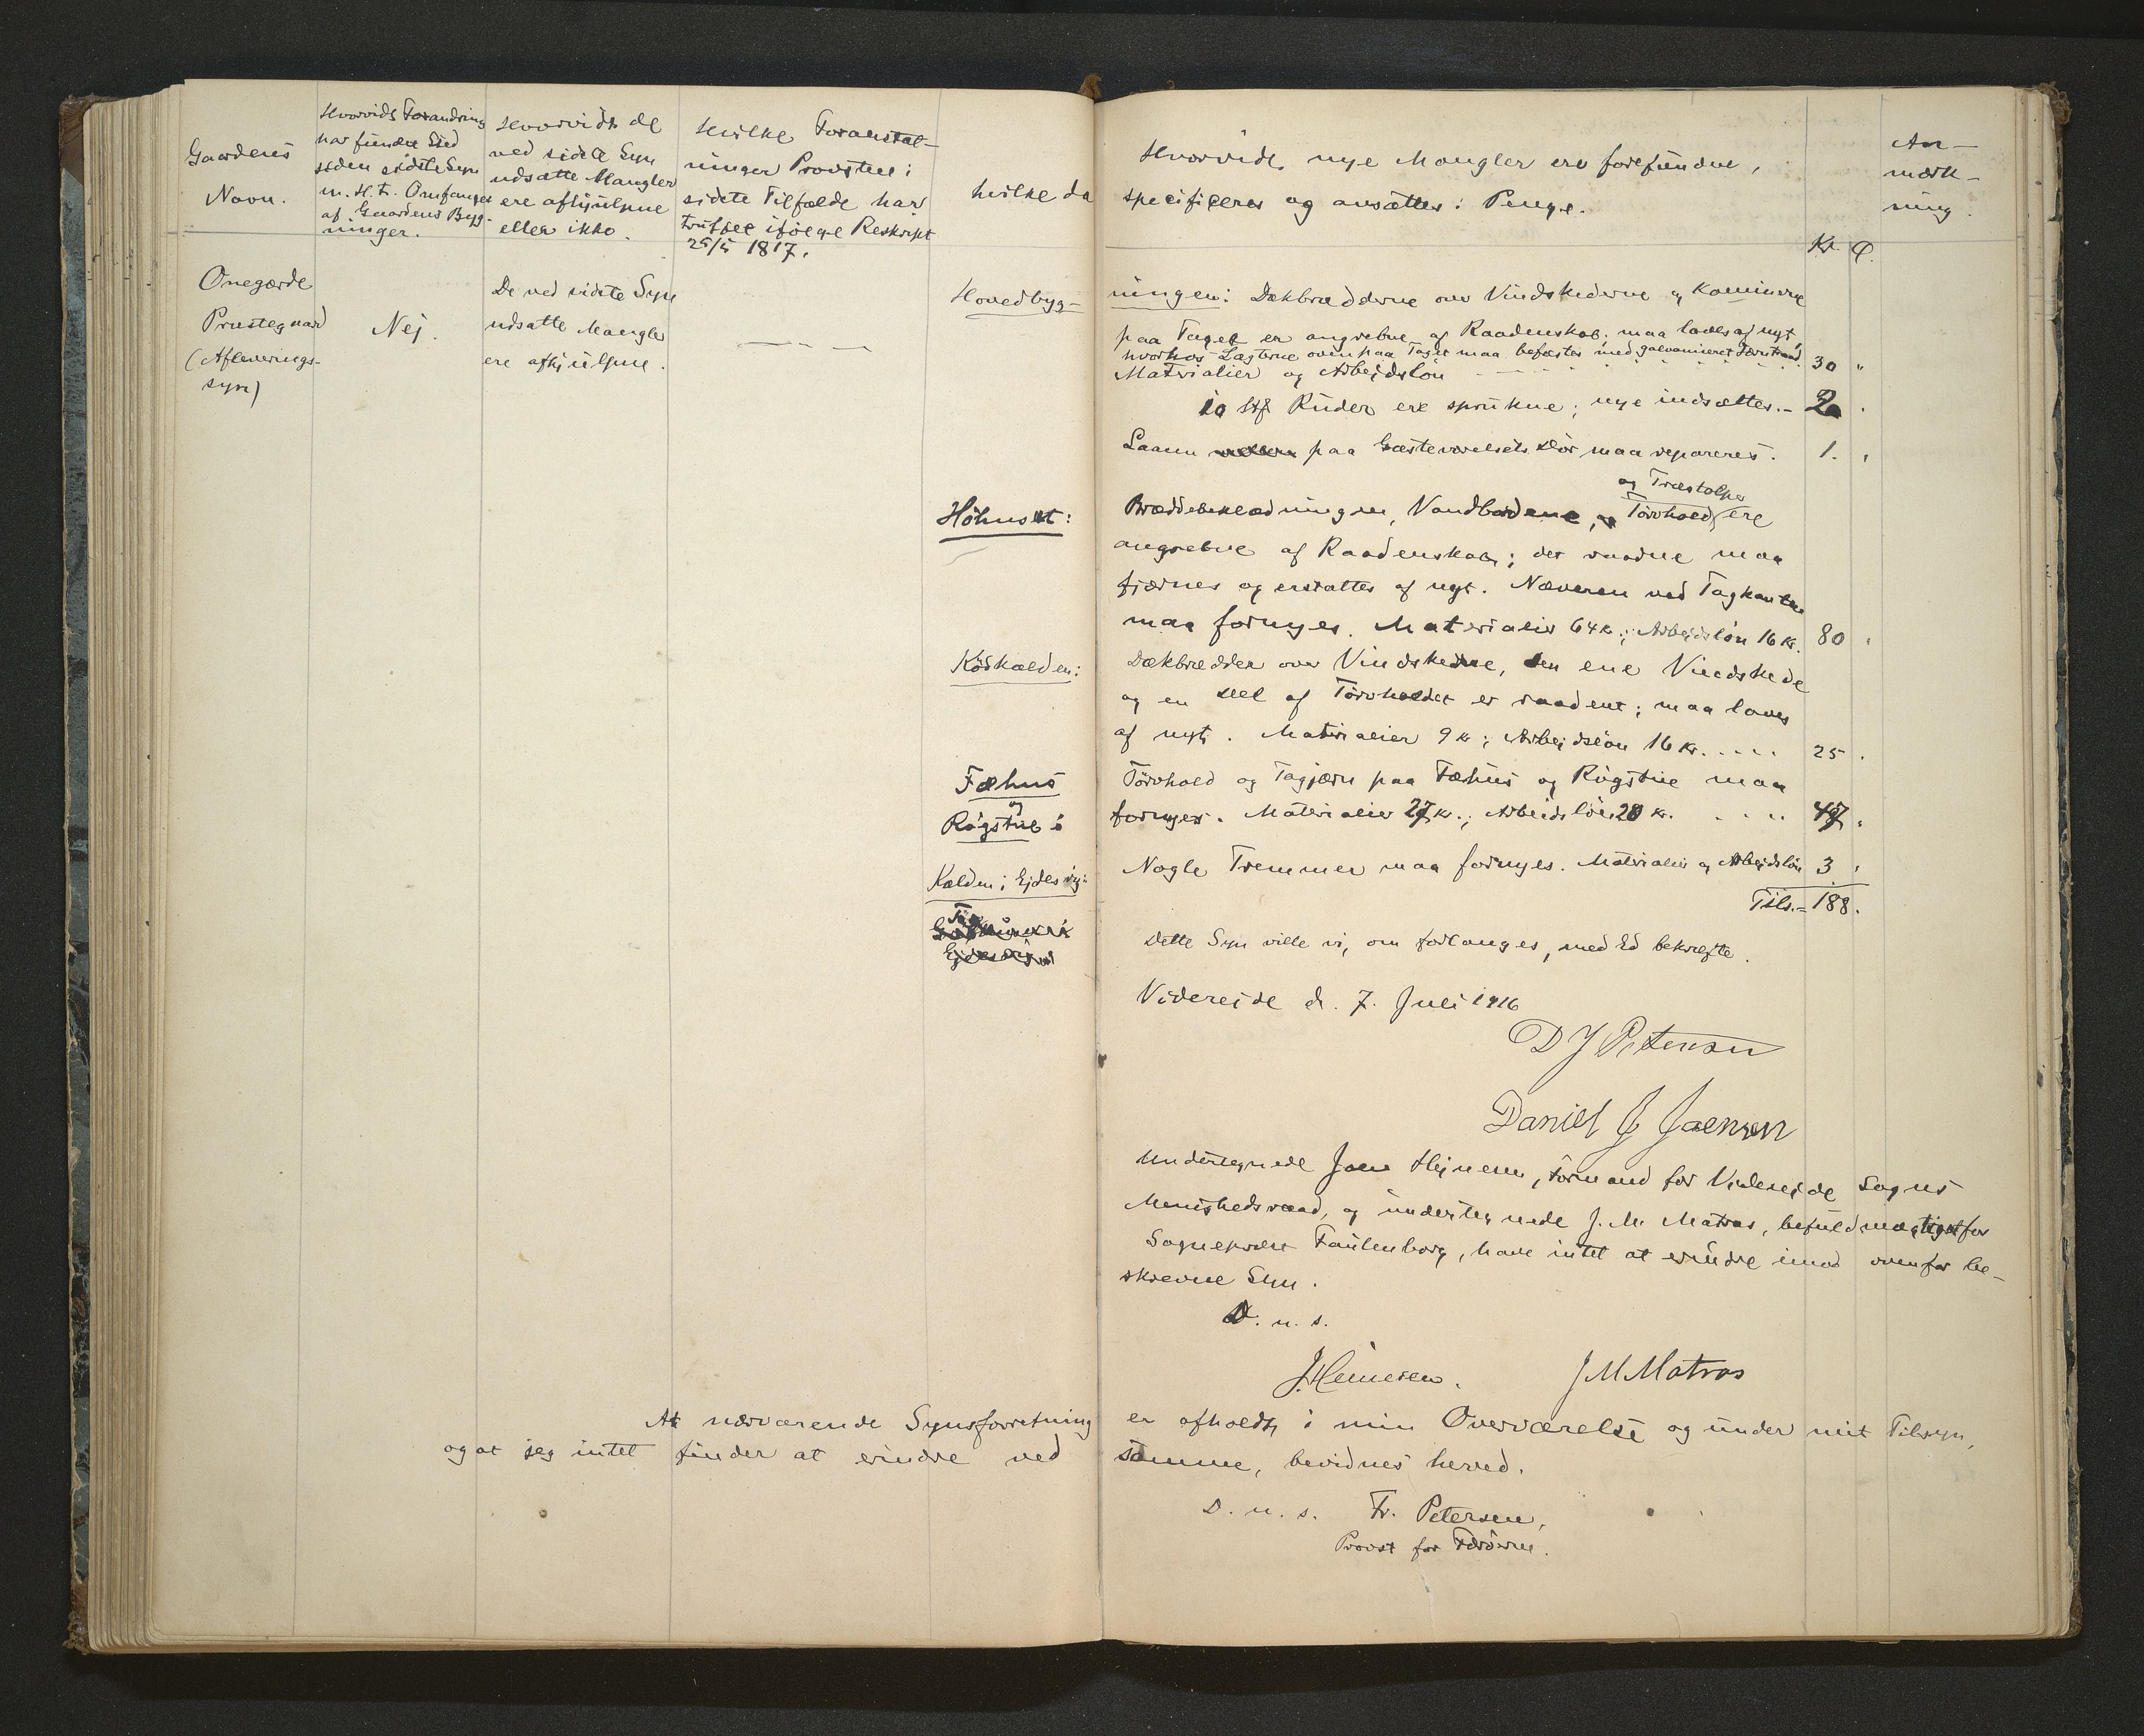 Gaardens
Navn.
Hvorvidt Forandring
har fundet Sted
siden sidste Syn
m. H. t. Omfanget
af Gaardens Byg-
ninger.
Hvorvidt de
ved sidste Syn
udsatte Mangler
ere afhjulpne
eller ikke.
Hvilke Foranstalt-
ninger Provsten i
sidste Tilfælde har
truffet ifølge Reskript
25/5 1817.
Hvorvidt nye Mangler ere forefundne,
hvilke da specificeres og ansættes i Penge.
An-
mærk-
ning.
Kr. Ø.
Onegærde
Præstegaard
(Afleverings-
syn)
Nej.
De ved sidste Syn
udsatte Mangler
ere afhjulpne.
Hovedbyg-
ningen: Dækbrædderne over Vindskederne og Kominerne
paa Taget er angrebne af Raadenskab; maa laves af nyt,
hvorhos Lægterne oven paa Taget maa befæstes med galvaniseret Jerntraad.
Materialier og Arbejdsløn 30 "
10 Stk Ruder ere sprukne; nye indsættes. - 2
Laasen paa Gæsteværelsets Dør maa repareres. 1. "
Høhuset: Bræddebeklædningen, Vandbordene, Tørvhold og Træstolper ere
angrebne af Raadenskab; det raadne maa
fjærnes og erstattes af nyt. Næveren ved Tagkanten
maa fornyes. Materialier 64 Kr.; Arbejdsløn 16 Kr. 80 "
Kødkælden: Dækbrædder over Vindskederne, den ene Vindskede
og en Del af Tørvholdet er raadent; maa laves
af nyt. Materialier 9 Kr; Arbejdsløn 16 Kr. .... 25 .
Fæhus
og
Røgstue: Tørvhold og Tagjærn paa Fæhus og Røgstue maa
fornyes. Materialier 27 Kr.; Arbejdsløn 20 Kr. .... 47 "
Kælden i Ejdesvig: Nogle Tremmer maa fornyes. Materialier og Arbejdsløn 3 "
Tils. = 188.
Dette Syn ville vi, om forlanges, med Ed bekræfte.
Viderejde d. 7. Juli 1916
D J Petersen
Daniel J Joensen
Undertegnede Joen Hejnesen, Formand for Viderejde Sogns
Menighedsraad, og undertegnede J. M. Matras, befuldmægtiget for
Sognepræst Faulenborg, have intet at erindre imod ovenfor be-
skrevne Syn.
D. u. s.
J. Heinesen. J M Matras
At nærværende Synsforretning er afholdt i min Overværelse og under mit Tilsyn,
og at jeg intet finder at erindre ved samme, bevidnes herved.
D. u. s. Fr. Petersen,
Provst for Færøerne.